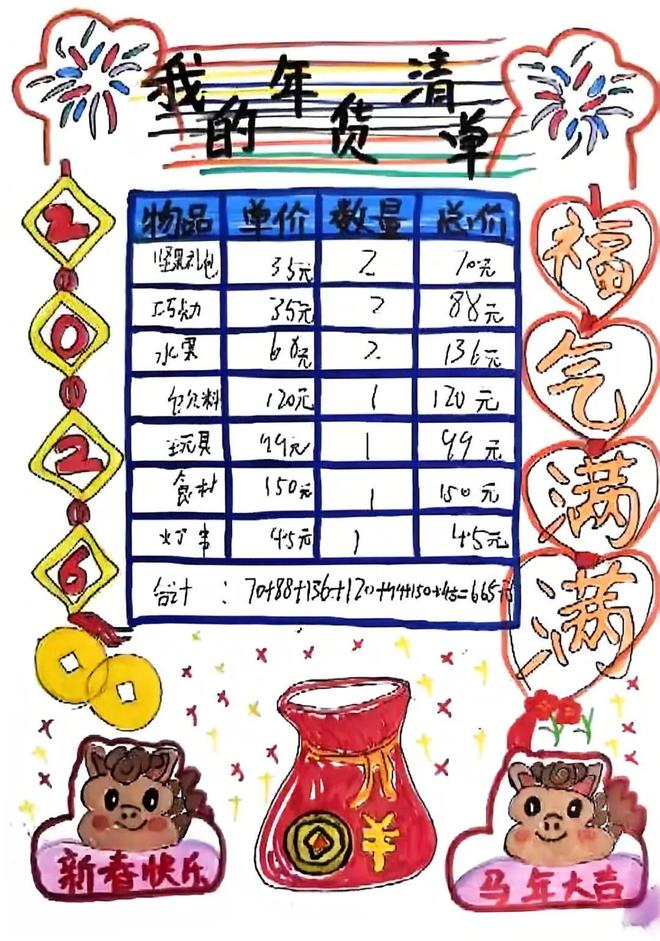 我的年货清单
2026
福气满满
物品 单价 数量 总价
坚果礼包 35元 2 70元
巧克力 35元 2 88元
水果 68元 2 136元
饮料 120元 1 120元
玩具 99元 1 99元
食材 150元 1 150元
灯串 45元 1 45元
合计：70+88+136+120+99+150+45=665元
羊
新春快乐
马年大吉